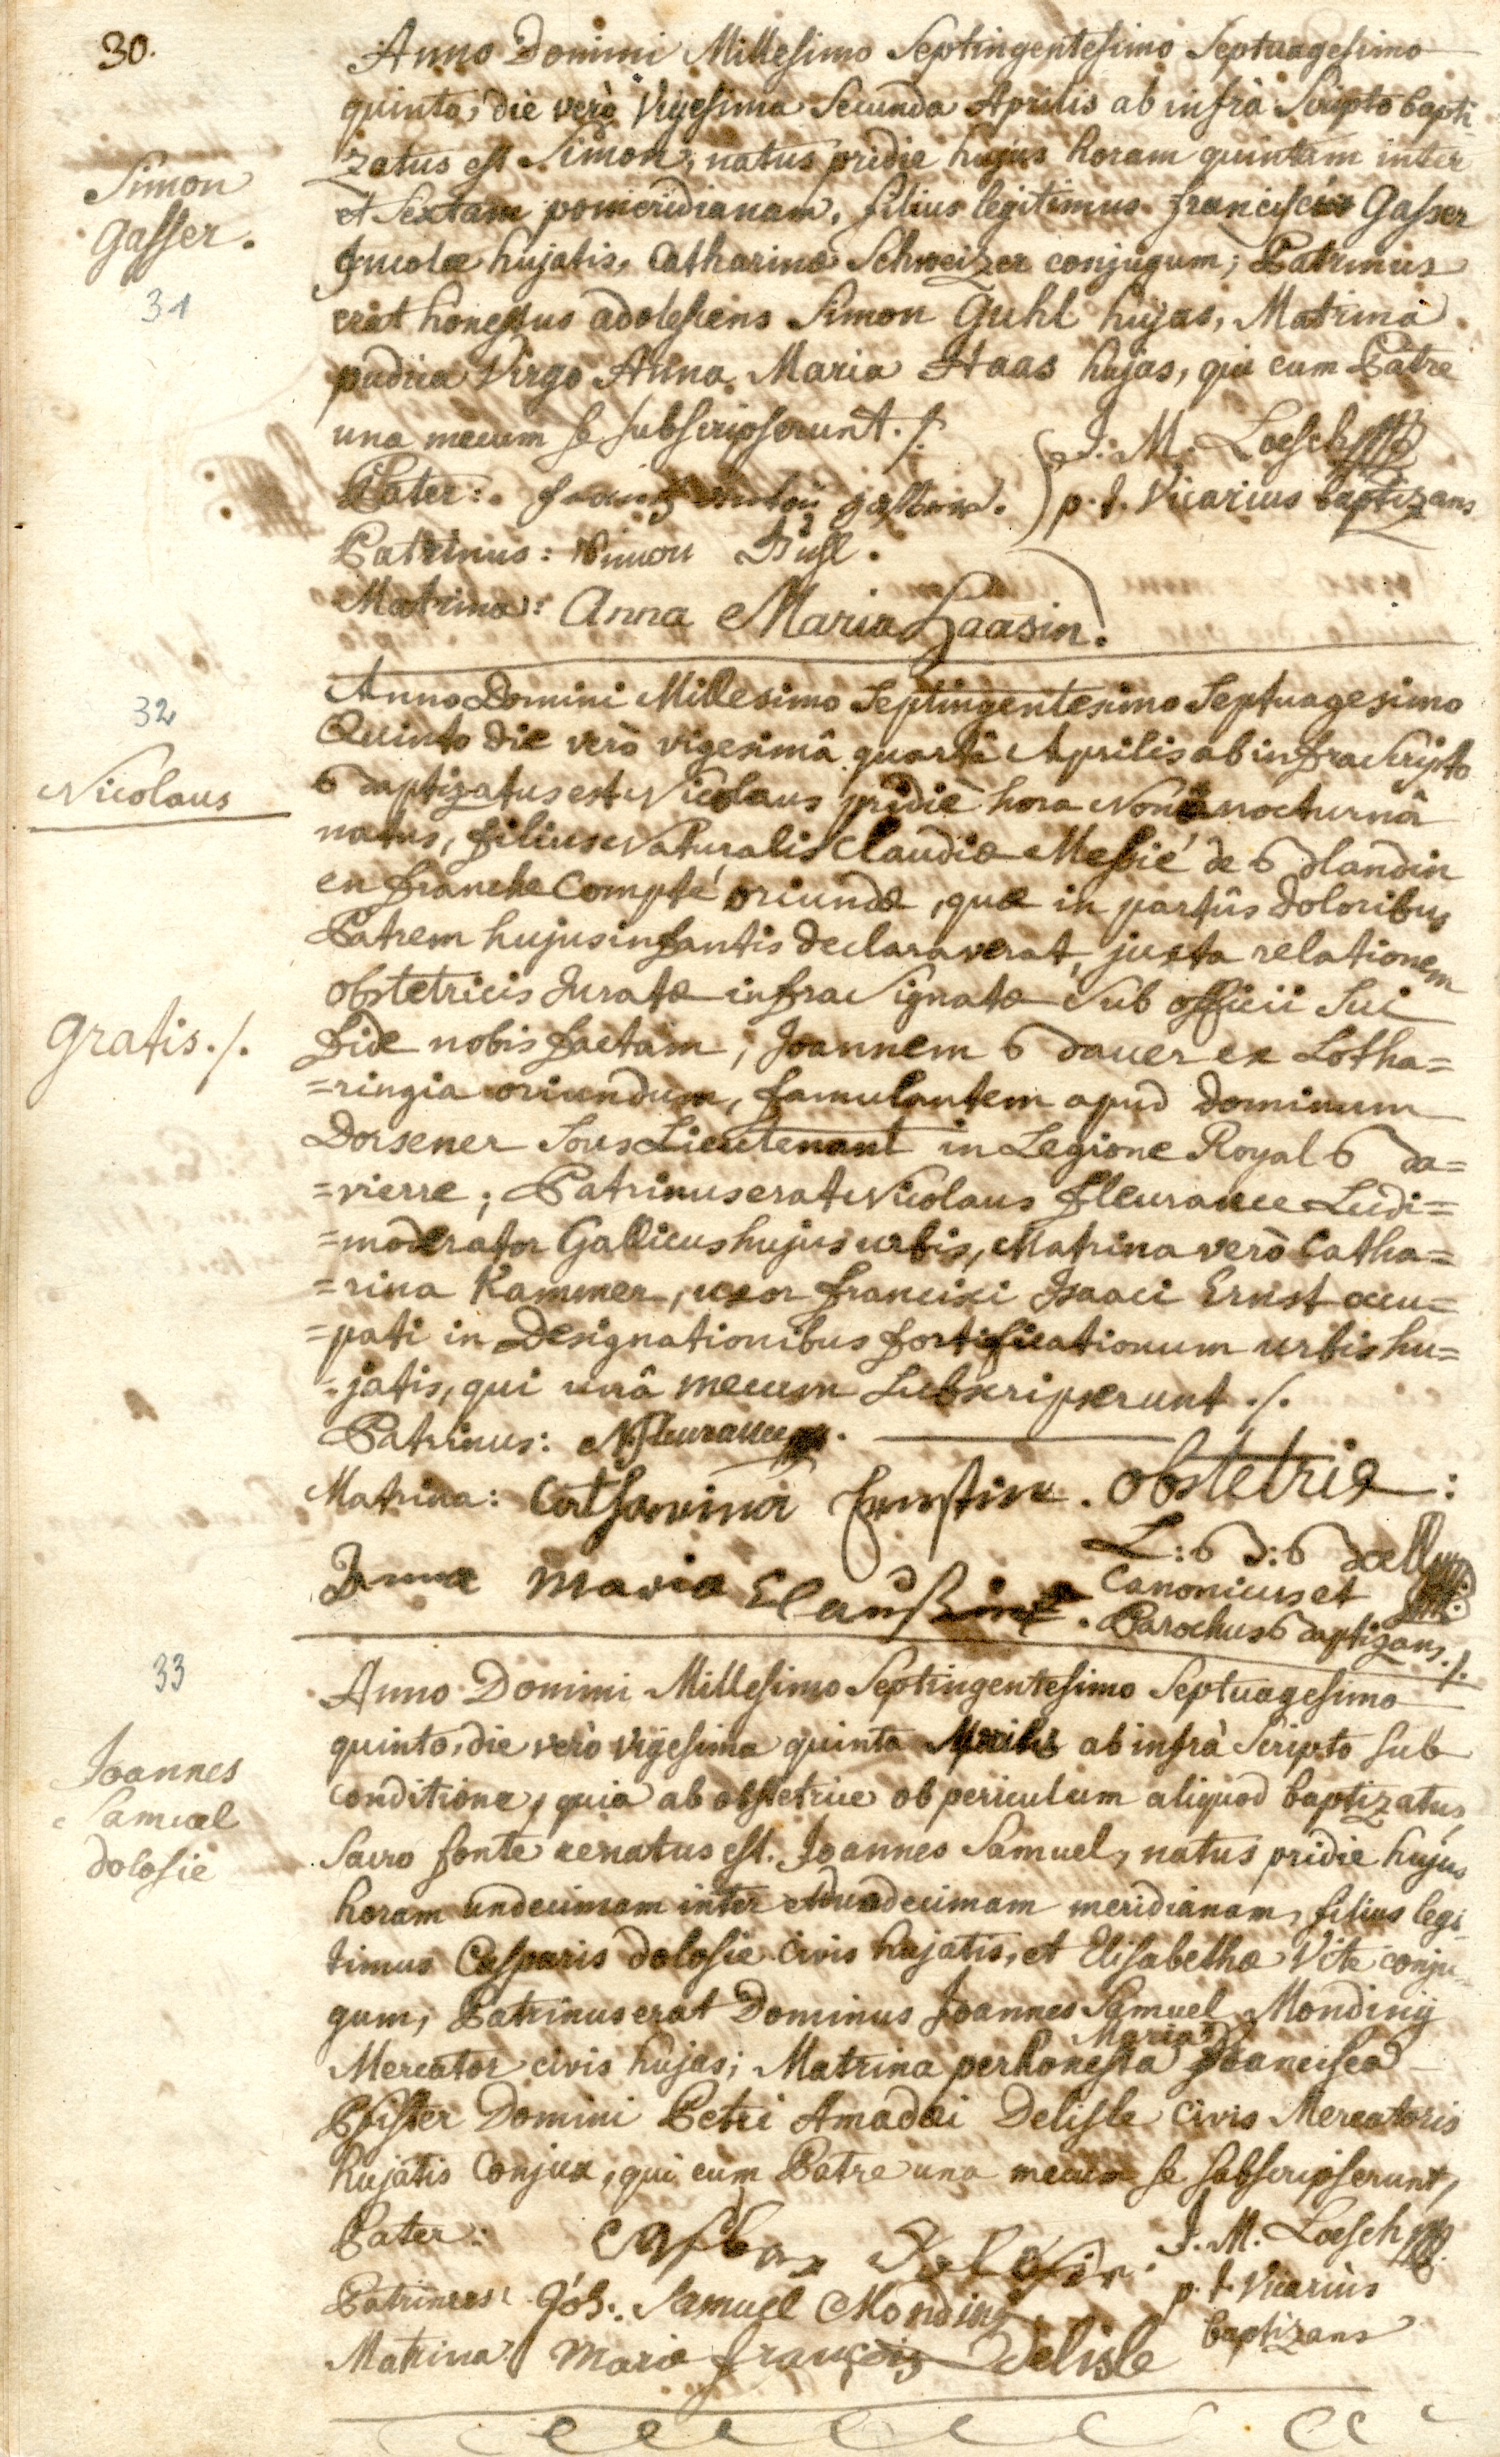 30.
Anno Domini Millesimo Septingentesimo Septuagesimo
quinto, die verò Vigesima Secunda Aprilis ab infrà Scripto bapti
zatus est Simon, natus pridie hujus horam quintam inter
et Sextam pomeridianam, filius legitimus Francisci Gasser
Incolæ hujatis, Catharinæ Schweizer conjugum; Patrinus
erat honestus adolescens Simon Guhl hujas, Matrina
pudica Virgo Anna Maria Haas hujas, qui cum Patre
una mecum se subscripserunt ./.
Simon
Gasser.
31
J. M. Loesch
p. t. Vicarius baptizans
Pater:
Patrinus: Simon Guhl.
Matrina: Anna Maria Haasin.
32
Nicolaus
gratis ./.
Anno Domini Millesimo Septingentesimo Septuagesimo
Quinto die verò vigesimâ quartâ Aprilis ab infra Scripto
Baptizatus est Nicolaus pridie hora Nonâ nocturnâ
natus, filius Naturalis Claudiæ Messié de Blandin
en franche Compté oriundæ, quæ in partûs doloribus
Patrem hujus infantis declaraverat, juxta relationem
obstetricis Juratæ infra Signatæ Sub officii Sui
fide nobis factam, Joannem Bauer ex Lotha=
=ringia oriundum, famulantem apud Dominum
Dorsener Sous Lieutenant in Legione Royal Ba=
=vierre; Patrinus erat Nicolaus fleurance Ludi=
=moderator Gallicus hujus urbis, Matrina verò Catha=
=rina Kammer, uxor francisci Isaaci Ernst occu=
=pati in Designationibus fortificationum urbis hu=
=jatis, qui unâ mecum Subscripserunt ./.
Patrinus: N fleurance.
Matrina: Catharina Ernstin. Obstetrix:
Anna Maria Claußin.
L: B: B
Canonicus et
Parochus Baptizans ./.
33
Joannes
Samuel
dolosie
Anno Domini Millesimo Septingentesimo Septuagesimo
quinto, die verò vigesima quinta Aprilis ab infrà Scripto sub
conditione, quia ab obstetrice ob periculum aliquod baptizatus,
Sacro fonte renatus est Joannes Samuel, natus pridie hujus
horam undecimam inter et duodecimam meridianam, filius legi
timus Casparis dolosie civis hujatis, et Elisabethæ Vite conju
gum; Patrinus erat Dominus Joannes Samuel Mondinÿ
Mercator civis hujas; Matrina perhonesta Maria Francisca
Pfister Domini Petri Amadæi Delisle Civis Mercatoris
hujatis Conjux, qui cum Patre una mecum se subscripserunt,
Pater: Casbar Dolosie.
J. M. Loesch
p. t. Vicarius
baptizans
Patrinus: Joh. Samuel Mondinÿ
Matrina: Maria françois Delisle